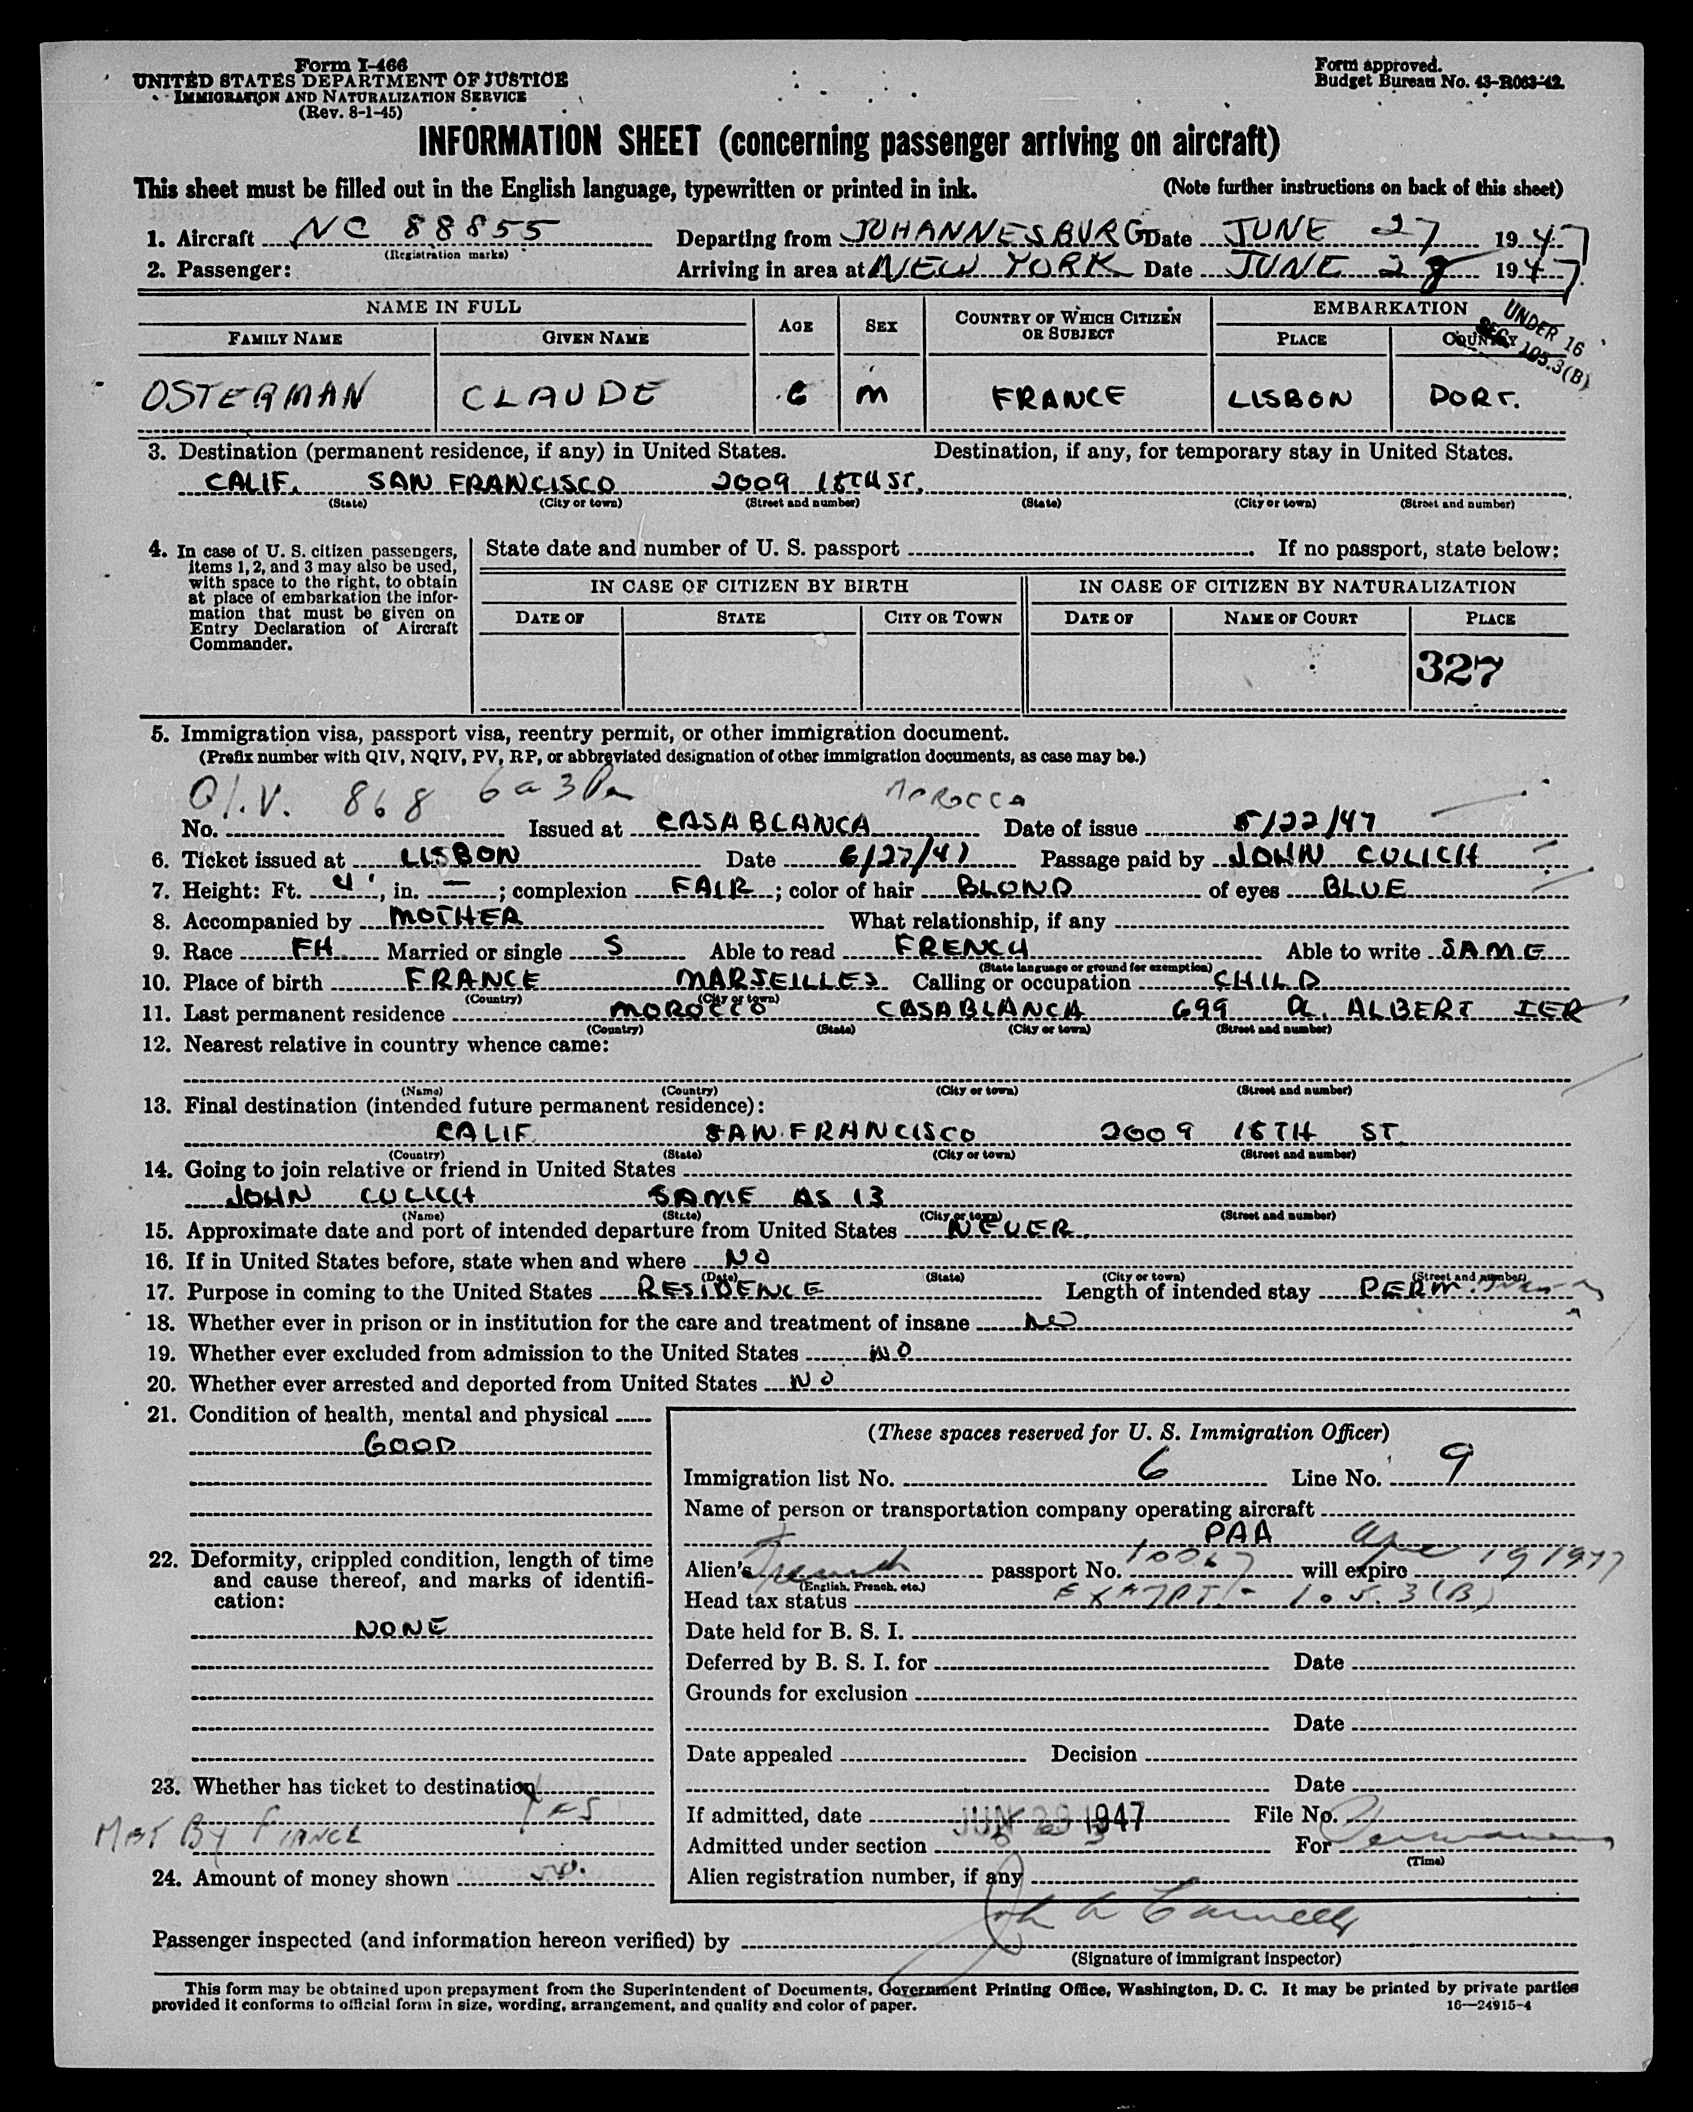 Form I-466
UNITED STATES DEPARTMENT OF JUSTICE
IMMIGRATION AND NATURALIZATION SERVICE
(Rev. 8-1-45)
Form approved.
Budget Bureau No. 43-R063-42.
INFORMATION SHEET (concerning passenger arriving on aircraft)
This sheet must be filled out in the English language, typewritten or printed in ink. (Note further instructions on back of this sheet)
1. Aircraft NC 88855 Departing from JOHANNESBURG Date JUNE 27 1947
(Registration marks)
2. Passenger: Arriving in area at NEW YORK Date JUNE 28 1947
NAME IN FULL AGE SEX COUNTRY OF WHICH CITIZEN OR SUBJECT EMBARKATION
UNDER 16
SEC. 105.3(B)
FAMILY NAME GIVEN NAME PLACE COUNTRY
OSTERMAN CLAUDE 6 M FRANCE LISBON PORT.
3. Destination (permanent residence, if any) in United States. Destination, if any, for temporary stay in United States.
CALIF. SAN FRANCISCO 2009 18TH ST.
(State) (City or town) (Street and number) (State) (City or town) (Street and number)
4. In case of U. S. citizen passengers, items 1, 2, and 3 may also be used, with space to the right, to obtain at place of embarkation the information that must be given on Entry Declaration of Aircraft Commander.
State date and number of U. S. passport If no passport, state below:
IN CASE OF CITIZEN BY BIRTH IN CASE OF CITIZEN BY NATURALIZATION
DATE OF STATE CITY OR TOWN DATE OF NAME OF COURT PLACE
327
5. Immigration visa, passport visa, reentry permit, or other immigration document.
(Prefix number with QIV, NQIV, PV, RP, or abbreviated designation of other immigration documents, as case may be.)
Q.I.V. 868 6a3 MOROCCO
No. Issued at CASABLANCA Date of issue 5/22/47
6. Ticket issued at LISBON Date 6/27/47 Passage paid by JOHN CULICH
7. Height: Ft. 4', in. —; complexion FAIR; color of hair BLOND of eyes BLUE
8. Accompanied by MOTHER What relationship, if any
9. Race FH Married or single S Able to read FRENCH Able to write SAME
(State language or ground for exemption)
10. Place of birth FRANCE MARSEILLES Calling or occupation CHILD
(Country) (City or town)
11. Last permanent residence MOROCCO CASABLANCA 699 ALBERT IER
(Country) (State) (City or town) (Street and number)
12. Nearest relative in country whence came:
(Name) (Country) (City or town) (Street and number)
13. Final destination (intended future permanent residence):
CALIF. SAN FRANCISCO 2009 18TH ST.
(Country) (State) (City or town) (Street and number)
14. Going to join relative or friend in United States
JOHN CULICH SAME AS 13
(Name) (State) (City or town) (Street and number)
15. Approximate date and port of intended departure from United States NEVER.
16. If in United States before, state when and where NO
(Date) (State) (City or town) (Street and number)
17. Purpose in coming to the United States RESIDENCE Length of intended stay PERM.
18. Whether ever in prison or in institution for the care and treatment of insane NO
19. Whether ever excluded from admission to the United States NO
20. Whether ever arrested and deported from United States NO
21. Condition of health, mental and physical
GOOD
22. Deformity, crippled condition, length of time and cause thereof, and marks of identification:
NONE
23. Whether has ticket to destination Yes
MET BY FIANCE
24. Amount of money shown
(These spaces reserved for U. S. Immigration Officer)
Immigration list No. 6 Line No. 9
Name of person or transportation company operating aircraft
PAA
Alien's French passport No. 10067 will expire Apr 19 1977
(English, French, etc.)
Head tax status EXEMPT - 105.3(B)
Date held for B. S. I.
Deferred by B. S. I. for Date
Grounds for exclusion
Date
Date appealed Decision
Date
If admitted, date JUN 29 1947 File No.
Admitted under section For Permanent
(Time)
Alien registration number, if any
Passenger inspected (and information hereon verified) by
(Signature of immigrant inspector)
This form may be obtained upon prepayment from the Superintendent of Documents, Government Printing Office, Washington, D. C. It may be printed by private parties
provided it conforms to official form in size, wording, arrangement, and quality and color of paper. 16—24915-4